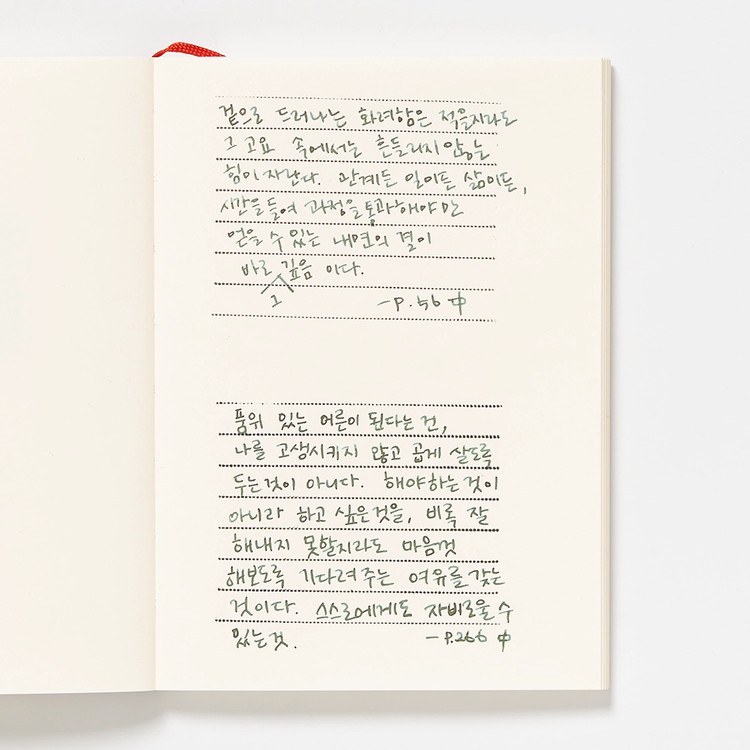 겉으로 드러나는 화려함은 적을지라도
그 고요 속에서는 흔들리지 않는
힘이 자란다. 관계든 일이든 삶이든,
시간을 들여 과정을 통과해야만
얻을 수 있는 내면의 결이
바로 깊음 이다.
그 -p.56 中
품위 있는 어른이 된다는 건,
나를 고생시키지 않고 곱게 살도록
두는것이 아니다. 해야하는것이
아니라 하고 싶은것을, 비록 잘
해내지 못할지라도 마음껏
해보도록 기다려주는 여유를 갖는
것이다. 스스로에게도 자비로울 수
있는것. -P.266 中